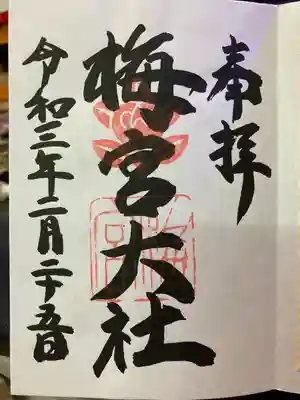 奉拝
梅宮大社
令和三年二月二十五日
梅宮